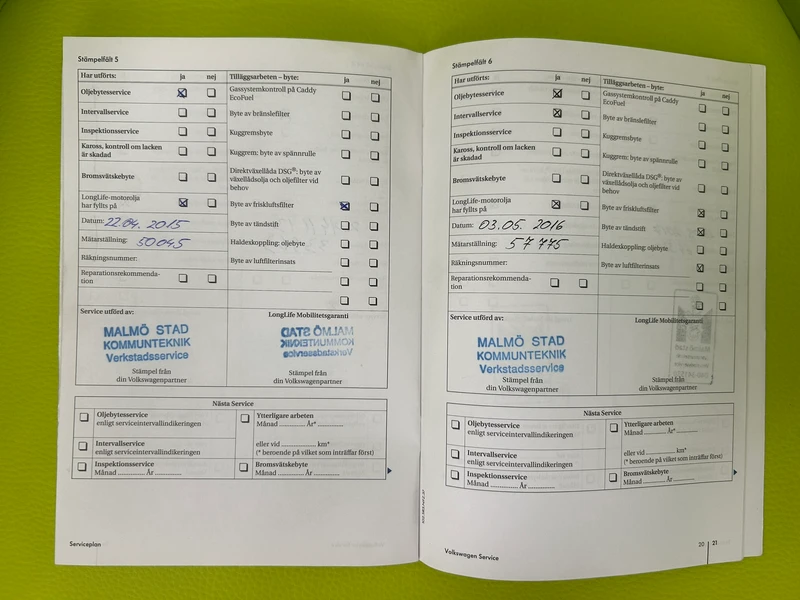 Stämpelfält 5
Har utförts: ja nej Tilläggsarbeten – byte: ja nej
Oljebytesservice Gassystemkontroll på Caddy
EcoFuel
Intervallservice Byte av bränslefilter
Inspektionsservice Kuggremsbyte
Kaross, kontroll om lacken
är skadad
Kuggrem: byte av spännrulle
Bromsvätskebyte Direktväxellåda DSG®: byte av
växellådsolja och oljefilter vid
behov
LongLife-motorolja
har fyllts på
Byte av friskluftsfilter
Datum: 22.04.2015 Byte av tändstift
Mätarställning: 50045 Haldexkoppling: oljebyte
Räkningsnummer: Byte av luftfilterinsats
Reparationsrekommenda-
tion
Service utförd av: LongLife Mobilitetsgaranti
MALMÖ STAD
KOMMUNTEKNIK
Verkstadsservice
MALMÖ STAD
KOMMUNTEKNIK
Verkstadsservice
Stämpel från
din Volkswagenpartner
Stämpel från
din Volkswagenpartner
Nästa Service
Oljebytesservice
enligt serviceintervallindikeringen
Ytterligare arbeten
Månad .............. År* ..............
Intervallservice
enligt serviceintervallindikeringen
eller vid .............. km*
(* beroende på vilket som inträffar först)
Inspektionsservice
Månad .............. År ..............
Bromsvätskebyte
Månad .............. År ..............
Serviceplan
Stämpelfält 6
Har utförts: ja nej Tilläggsarbeten – byte: ja nej
Oljebytesservice Gassystemkontroll på Caddy
EcoFuel
Intervallservice Byte av bränslefilter
Inspektionsservice Kuggremsbyte
Kaross, kontroll om lacken
är skadad
Kuggrem: byte av spännrulle
Bromsvätskebyte Direktväxellåda DSG®: byte av
växellådsolja och oljefilter vid
behov
LongLife-motorolja
har fyllts på
Byte av friskluftsfilter
Datum: 03.05.2016 Byte av tändstift
Mätarställning: 57775 Haldexkoppling: oljebyte
Räkningsnummer: Byte av luftfilterinsats
Reparationsrekommenda-
tion
Service utförd av: LongLife Mobilitetsgaranti
MALMÖ STAD
KOMMUNTEKNIK
Verkstadsservice
Stämpel från
din Volkswagenpartner
Stämpel från
din Volkswagenpartner
Nästa Service
Oljebytesservice
enligt serviceintervallindikeringen
Ytterligare arbeten
Månad .............. År* ..............
Intervallservice
enligt serviceintervallindikeringen
eller vid .............. km*
(* beroende på vilket som inträffar först)
Inspektionsservice
Månad .............. År ..............
Bromsvätskebyte
Månad .............. År ..............
Volkswagen Service
20 21